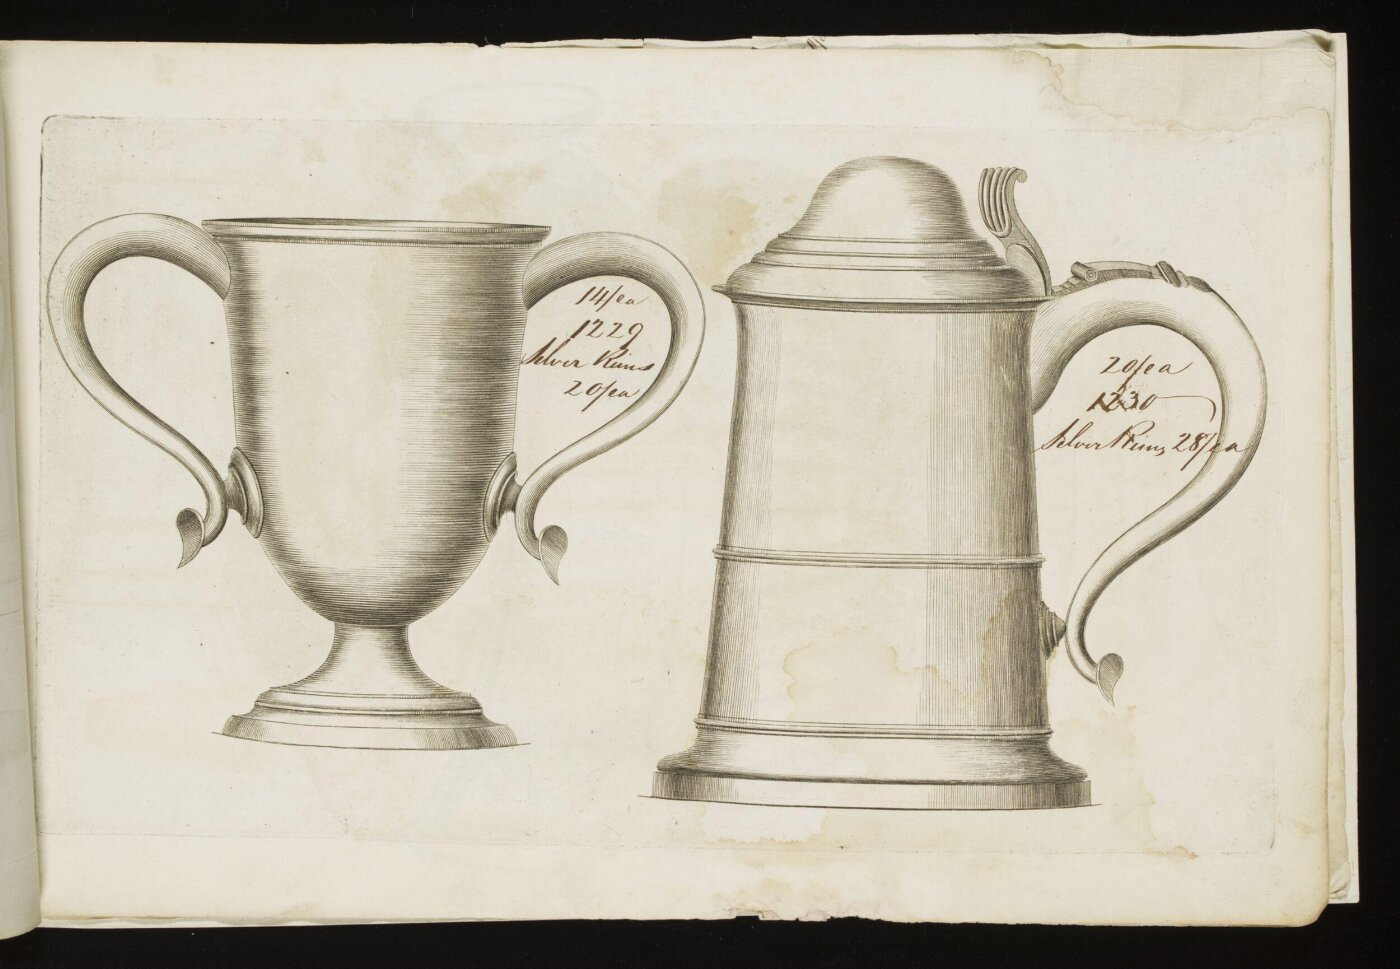 14/ea
1229
Silver Rims
20/ea
20/ea
1230
Silver Rims 28/ea